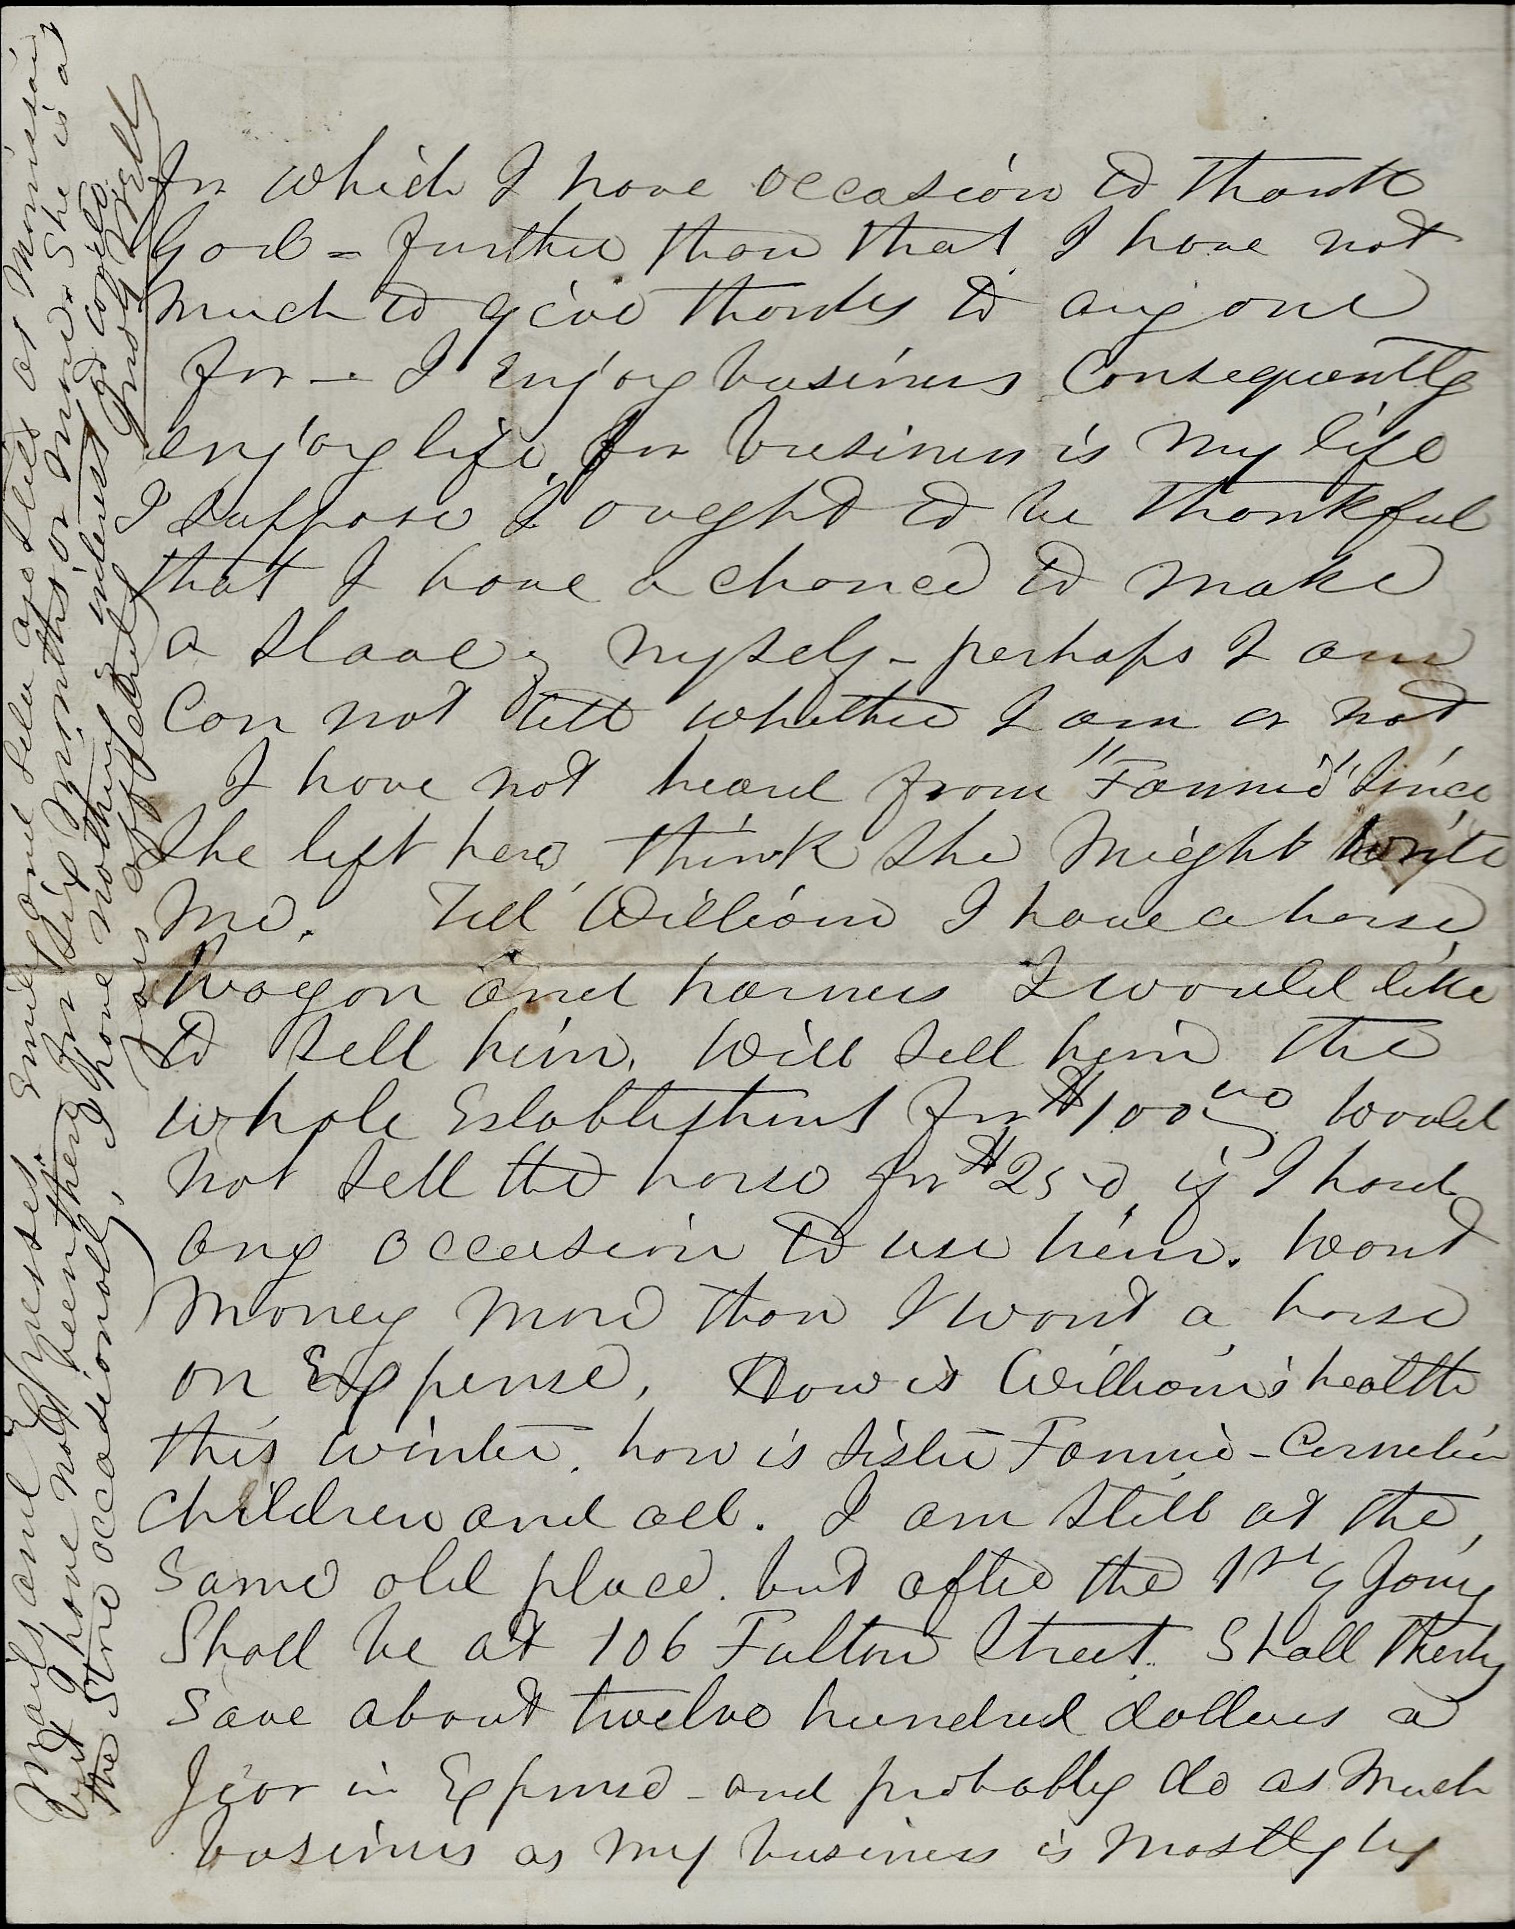 for which I have occasion to thank
God = further than that I have not
much to give thanks to any one
for - I enjoy business Consequently
enjoy life, for business is my life
I suppose I ought to be thankful
that I have a chance to make
a slave of myself - perhaps I am
Can not tell whether I am or not
I have not heard from "Fannie" since
she left here, think she might write
me. Tell William I have a horse,
wagon and harness I would like
to sell him. Will sell him the
whole Establishment for $100.00 would
not sell the horse for $250, if I had
any occasion to use him. Want
money more than I want a horse
on Expense, How is William's health
this winter. how is sister Fannie - Cornelia
children and all. I am still at the
same old place. but after the 1st of Jany
Shall be at 106 Fulton Street. Shall thereby
save about twelve hundred dollars a
year in Expense - and probably do as much
business as my business is mostly by
Mails and Expresses. Emily and Lela are still at Morrisania
but I have not been there for six months or more. She is at
the Store occasionally, I have nothing interest
Yours affectionately